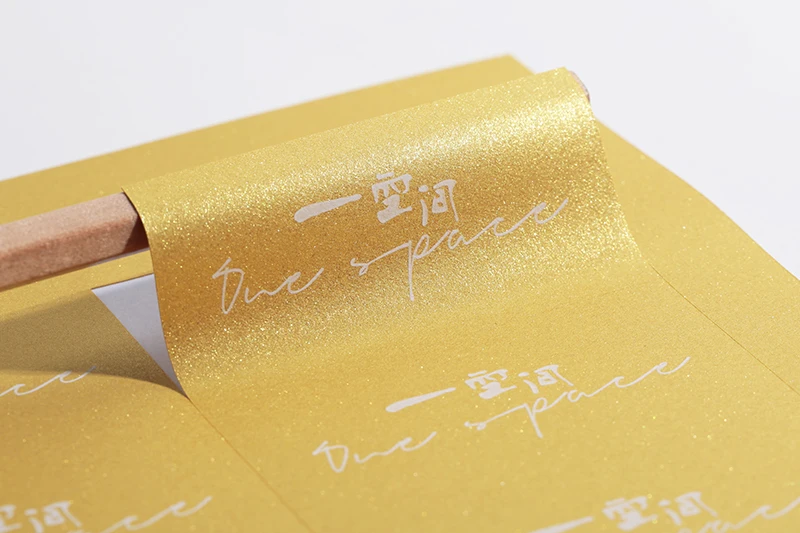 一空间
One space
一空间
One space
空间
space
一空间
space